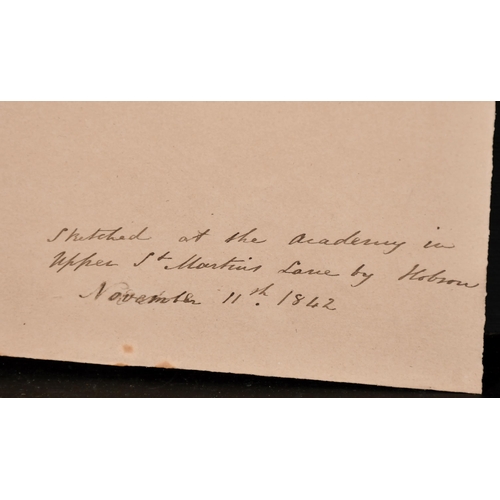 Sketched at the academy in
Upper St Martins Lane by Hobson
November 11th. 1842